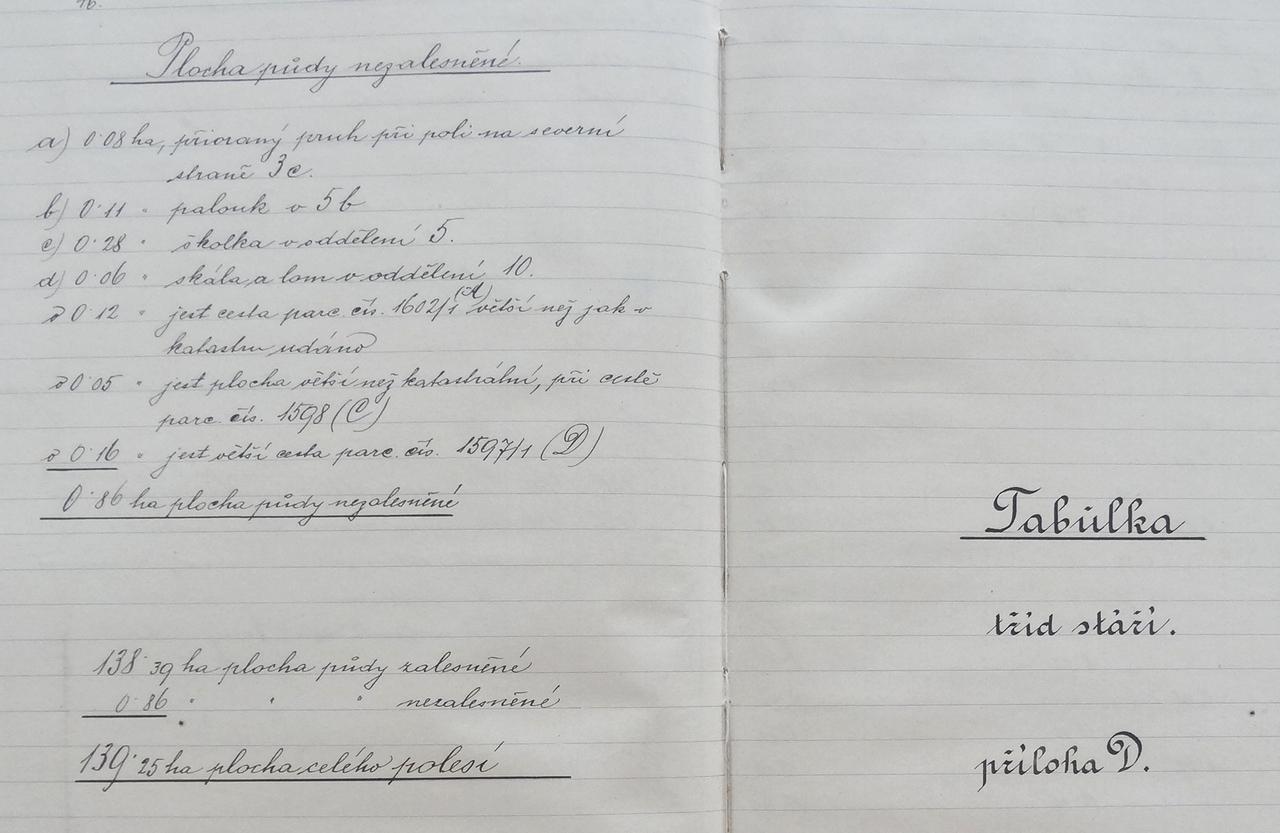 16.
Plocha půdy nezalesněné.
a) 0·08 ha, přioraný pruh při poli na severní
straně 3c.
b) 0·11 " palouk v 5b
c) 0·28 " školka v oddělení 5.
d) 0·06 " skála, a lom v oddělení 10.
0·12 " jest cesta parc. čís. 1602/1 (A) větší než jak v
katastru udáno
0·05 " jest plocha větší než katastrální, při cestě
parc. čís. 1598 (C)
0·16 " jest větší cesta parc. čís. 1597/1 (D)
0·86 ha plocha půdy nezalesněné
138·39 ha plocha půdy zalesněné
0·86 " " " nezalesněné
139·25 ha plocha celého polesí
Tabulka
tříd stáří.
příloha D.